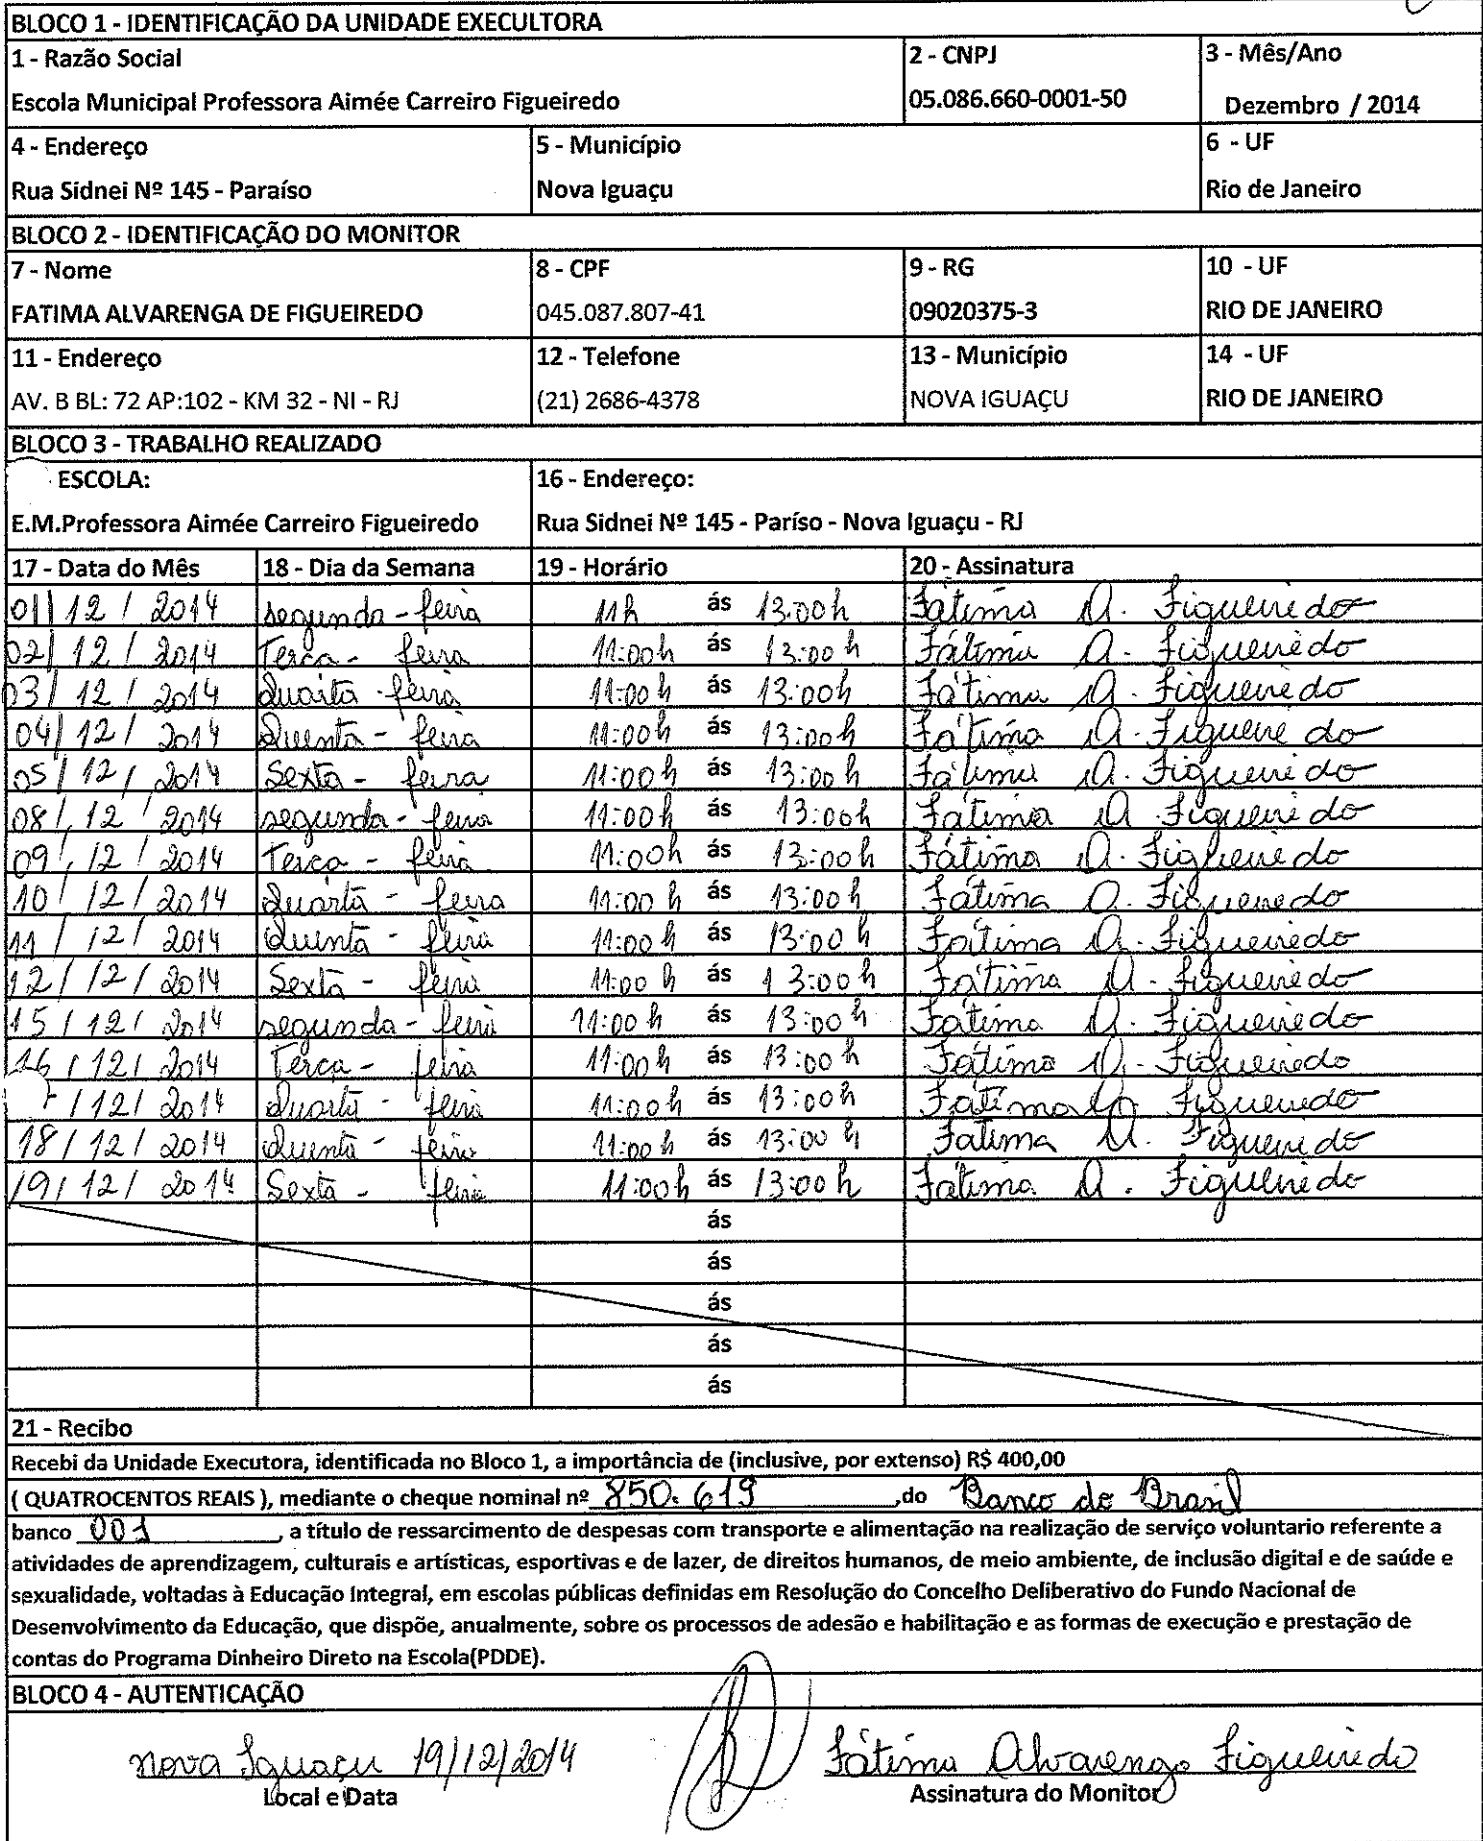 BLOCO 1 - IDENTIFICAÇÃO DA UNIDADE EXECULTORA
1 - Razão Social 2 - CNPJ 3 - Mês/Ano
Escola Municipal Professora Aimée Carreiro Figueiredo 05.086.660-0001-50 Dezembro / 2014
4 - Endereço 5 - Município 6 - UF
Rua Sidnei Nº 145 - Paraíso Nova Iguaçu Rio de Janeiro
BLOCO 2 - IDENTIFICAÇÃO DO MONITOR
7 - Nome 8 - CPF 9 - RG 10 - UF
FATIMA ALVARENGA DE FIGUEIREDO 045.087.807-41 09020375-3 RIO DE JANEIRO
11 - Endereço 12 - Telefone 13 - Município 14 - UF
AV. B BL: 72 AP:102 - KM 32 - NI - RJ (21) 2686-4378 NOVA IGUAÇU RIO DE JANEIRO
BLOCO 3 - TRABALHO REALIZADO
ESCOLA: 16 - Endereço:
E.M.Professora Aimée Carreiro Figueiredo Rua Sidnei Nº 145 - Paríso - Nova Iguaçu - RJ
17 - Data do Mês 18 - Dia da Semana 19 - Horário 20 - Assinatura
01/12/2014 segunda-feira 11h ás 13:00h Fátima A. Figueiredo
02/12/2014 Terça-feira 11:00h ás 13:00h Fátima A. Figueiredo
03/12/2014 Quarta-feira 11:00h ás 13:00h Fátima A. Figueiredo
04/12/2014 Quinta-feira 11:00h ás 13:00h Fátima A. Figueiredo
05/12/2014 Sexta-feira 11:00h ás 13:00h Fátima A. Figueiredo
08/12/2014 segunda-feira 11:00h ás 13:00h Fátima A. Figueiredo
09/12/2014 Terça-feira 11:00h ás 13:00h Fátima A. Figueiredo
10/12/2014 Quarta-feira 11:00h ás 13:00h Fátima A. Figueiredo
11/12/2014 Quinta-feira 11:00h ás 13:00h Fátima A. Figueiredo
12/12/2014 Sexta-feira 11:00h ás 13:00h Fátima A. Figueiredo
15/12/2014 segunda-feira 11:00h ás 13:00h Fátima A. Figueiredo
16/12/2014 Terça-feira 11:00h ás 13:00h Fátima A. Figueiredo
/12/2014 Quarta-feira 11:00h ás 13:00h Fátima A. Figueiredo
18/12/2014 Quinta-feira 11:00h ás 13:00h Fátima A. Figueiredo
19/12/2014 Sexta-feira 11:00h ás 13:00h Fátima A. Figueiredo
ás
ás
ás
ás
ás
21 - Recibo
Recebi da Unidade Executora, identificada no Bloco 1, a importância de (inclusive, por extenso) R$ 400,00
( QUATROCENTOS REAIS ), mediante o cheque nominal nº 850.619 ,do Banco do Brasil
banco 001 , a título de ressarcimento de despesas com transporte e alimentação na realização de serviço voluntario referente a
atividades de aprendizagem, culturais e artísticas, esportivas e de lazer, de direitos humanos, de meio ambiente, de inclusão digital e de saúde e
sexualidade, voltadas à Educação Integral, em escolas públicas definidas em Resolução do Concelho Deliberativo do Fundo Nacional de
Desenvolvimento da Educação, que dispõe, anualmente, sobre os processos de adesão e habilitação e as formas de execução e prestação de
contas do Programa Dinheiro Direto na Escola(PDDE).
BLOCO 4 - AUTENTICAÇÃO
Nova Iguaçu 19/12/2014 Fátima Alvarenga Figueiredo
Local e Data Assinatura do Monitor